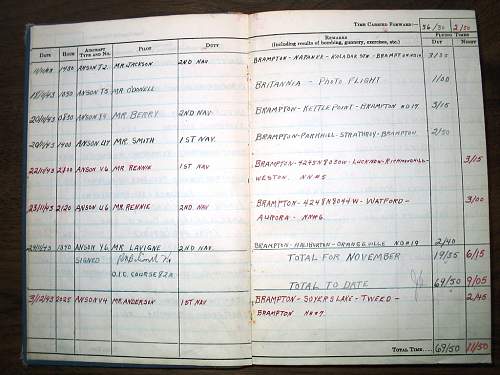 TIME CARRIED FORWARD:— 56/30 2/50
DATE HOUR AIRCRAFT TYPE AND NO. PILOT DUTY REMARKS (Including results of bombing, gunnery, exercises, etc.) FLYING TIMES DAY NIGHT
1430 ANSON T2. MR. JACKSON 2ND NAV. BRAMPTON - NAPANEE - BRAMPTON
18/11/43 1030 ANSON T5 MR. ODONELL BRITANNIA - PHOTO FLIGHT 1/00
20/11/43 0830 ANSON Y4 MR. BERRY 2ND NAV. BRAMPTON - KETTLE POINT - BRAMPTON ND#9 3/15
20/11/43 1400 ANSON U4 MR. SMITH 1ST NAV. BRAMPTON - PARKHILL - STRATHROY - BRAMPTON 2/50
22/11/43 ANSON Y6 MR. RENNIE 1ST NAV. BRAMPTON - 4245N 8030W - LUCKNOW - RICHMONDHILL - 3/15
WESTON. NN#5
23/11/43 2120 ANSON U6 MR. RENNIE 2ND. NAV. BRAMPTON - 4248N 8044W - WATFORD - 3/00
AURORA - NN#6.
ANSON Y6. MR. LAVIGNE 2ND NAV. BRAMPTON - HALIBURTON - ORANGEVILLE ND#19 2/40
SIGNED TOTAL FOR NOVEMBER 19/35 6/15
O.I.C. COURSE 82A TOTAL TO DATE 69/50 9/05
3/12/43 2025 ANSON V4 MR. ANDERSON 1ST NAV BRAMPTON - SOYERS LAKE - TWEED - 2/45
BRAMPTON NN#7.
TOTAL TIME.... 69/50 11/50